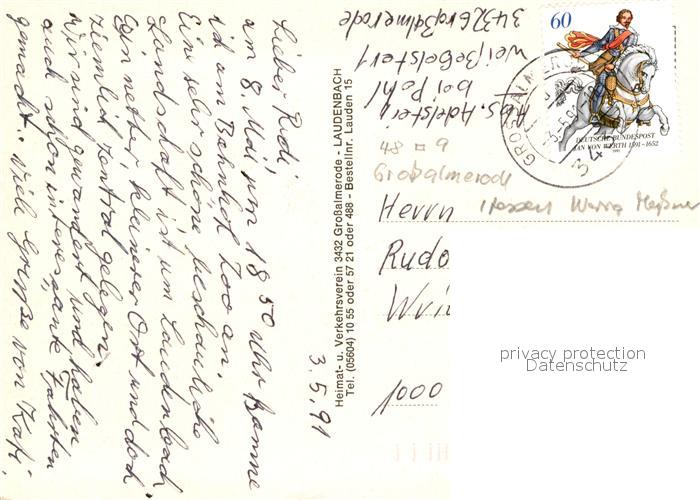 Lieber Rudi,
am 8. Mai um 18.50 Uhr komme
ich am Bahnhof Zoo an.
Eine sehr schöne beschauliche
Landschaft ist um Laudenbach
Ein netter kleinerer Ort und doch
ziemlich zentral gelegen.
Wir sind gewandert und haben
auch schon interessante Fahrten
gemacht. Viele Grüße von Kati.
3.5.91
Heimat- u. Verkehrsverein 3432 Großalmerode - LAUDENBACH
Tel. (05604) 10 55 oder 57 21 oder 488 - Bestellnr. Lauden 15
Abs. Adelsteil
bei Pohl
34326 Großalmerode
60
DEUTSCHE BUNDESPOST
JAN VON WERTH 1591-1652
1991
48 □ 9
Großalmerode
Hessen Werra Meißner
Herrn
Rudo
1000
privacy protection
Datenschutz